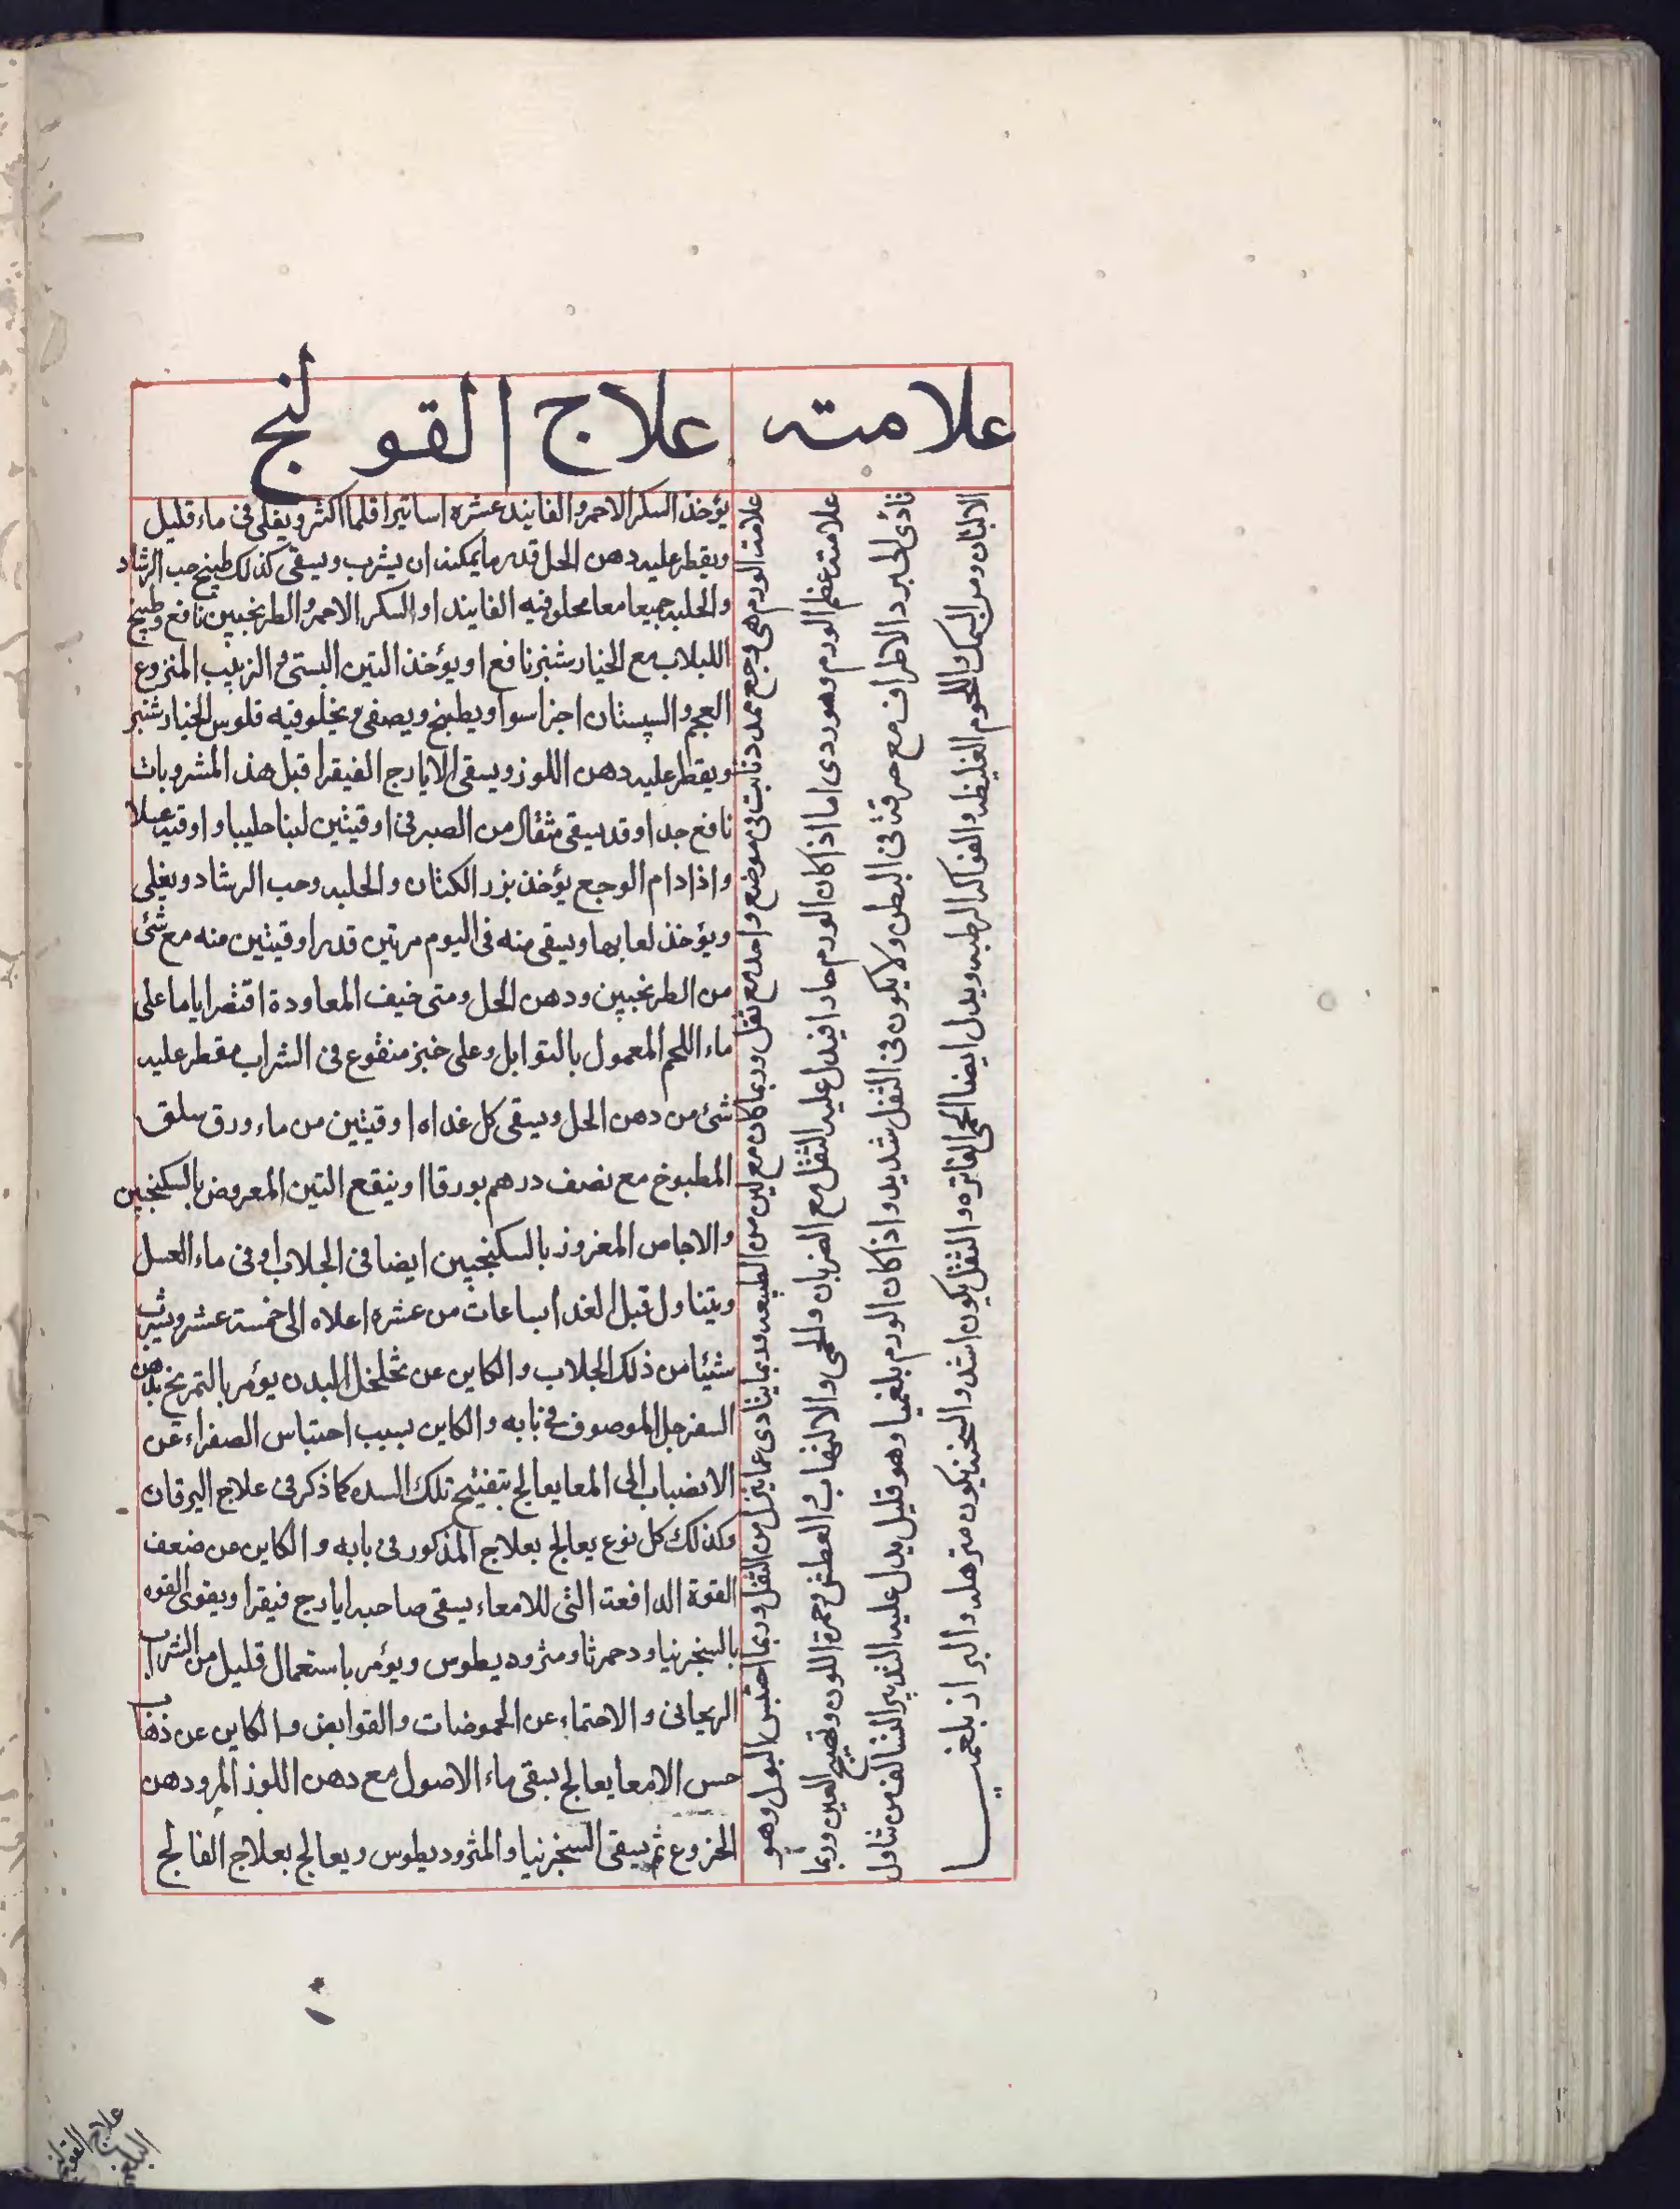 علامته
علاج القولنج
علامت الورم هى وجع ممدد ثابت فى موضع واحد مع ثقل وربما كان مع لين من الطبيعه وربما يتادى عما ينزل من الثقل وربما احتبس البول وهو
علامت عظم الورم وهو ردى اما اذا كان الورم حادا فيدل عليه الثقل مع الضربان والحمى والالتهاب والعطش وحمرة اللون وتهييج العين وربما
تأدى الى برد الاطراف مع حرقة فى البطن ولا يكون فى الثقل شديد واذا كان الورم بلغميا وهو قليل يدل عليه التدبير السالف من تناول
الالبان ومن السمك واللحوم الغليظه والفواكه الرطبه ويدل ايضا الحمى الفاتره والثقل يكون اشد والسحنه يكون مترهله والبراز بلغميـا
يؤخذ السكر الاحمر والفانيد عشره اساتيرا قلما اكثر ويغلى فى ماء قليل
ويقطر عليه دهن الحل قدر ما يمكنه ان يشرب ويسقى كذلك طبيخ حب الرشاد
والحلبه جميعا معا محلو فيه الفانيد او السكر الاحمر والطرنجبين نافع وطبيخ
اللبلاب مع الخيارشنبر نافع او يؤخذ التين البستى والزبيب المنزوع
العجم والسپستان اجزا سوا ويطبخ ويصفى ويخلو فيه فلوس الخيارشنبر
ويقطر عليه دهن اللوز ويسقى الايارج الفيقرا قبل هذ المشروبات
نافع جدا وقد يسقى مثقال من الصبر فى اوقيتين لبنا حليبا واوقيه عسلا
واذا دام الوجع يؤخذ بزر الكتان والحلبه وحب الرشاد ويغلى
ويؤخذ لعابها ويسقى منه فى اليوم مرتين قدر اوقيتين منه مع شئ
من الطرنجبين ودهن الحل ومتى خيف المعاودة اقتصر اياما على
ماء اللحم المعمول بالتوابل وعلى خبز منقوع فى الشراب مقطر عليه
شئ من دهن الحل ويسقى كل غداه اوقيتين من ماء ورق سلق
المطبوخ مع نصف درهم بورقا او ينقع التين المعروض بالسكنجبين
والاجاص المغروز بالسكنجبين ايضا فى الجلاب او فى ماء العسل
ويتناول قبل الغدا بساعات من عشره اعلاه الى خمسة عشر ويشرب
شيئا من ذلك الجلاب والكاين عن تخلخل البدن يؤمر بالتمريخ بدهن
السفرجل الموصوف فى بابه والكاين بسبب احتباس الصفراء عن
الانضباب الى المعا يعالج بتفتيح تلك السده كما ذكر فى علاج اليرقان
وكذلك كل نوع يعالج بعلاج المذكور فى بابه والكاين عن ضعف
القوة الدافعة التى للامعاء يسقى صاحبه ايارج فيقرا ويقوى القوه
بالسنجرنيا ودحمرثا ومثروديطوس ويؤمر باستعمال قليل من الشراب
الريحانى والاحتماء عن الحموضات والقوابض والكاين عن ذهاب
حس الامعا يعالج بسقى ماء الاصول مع دهن اللوز المر ودهن
الخروع ثم يسقى السنجرنيا والمثروديطوس ويعالج بعلاج الفالج
علاج القولنج
البلغمى